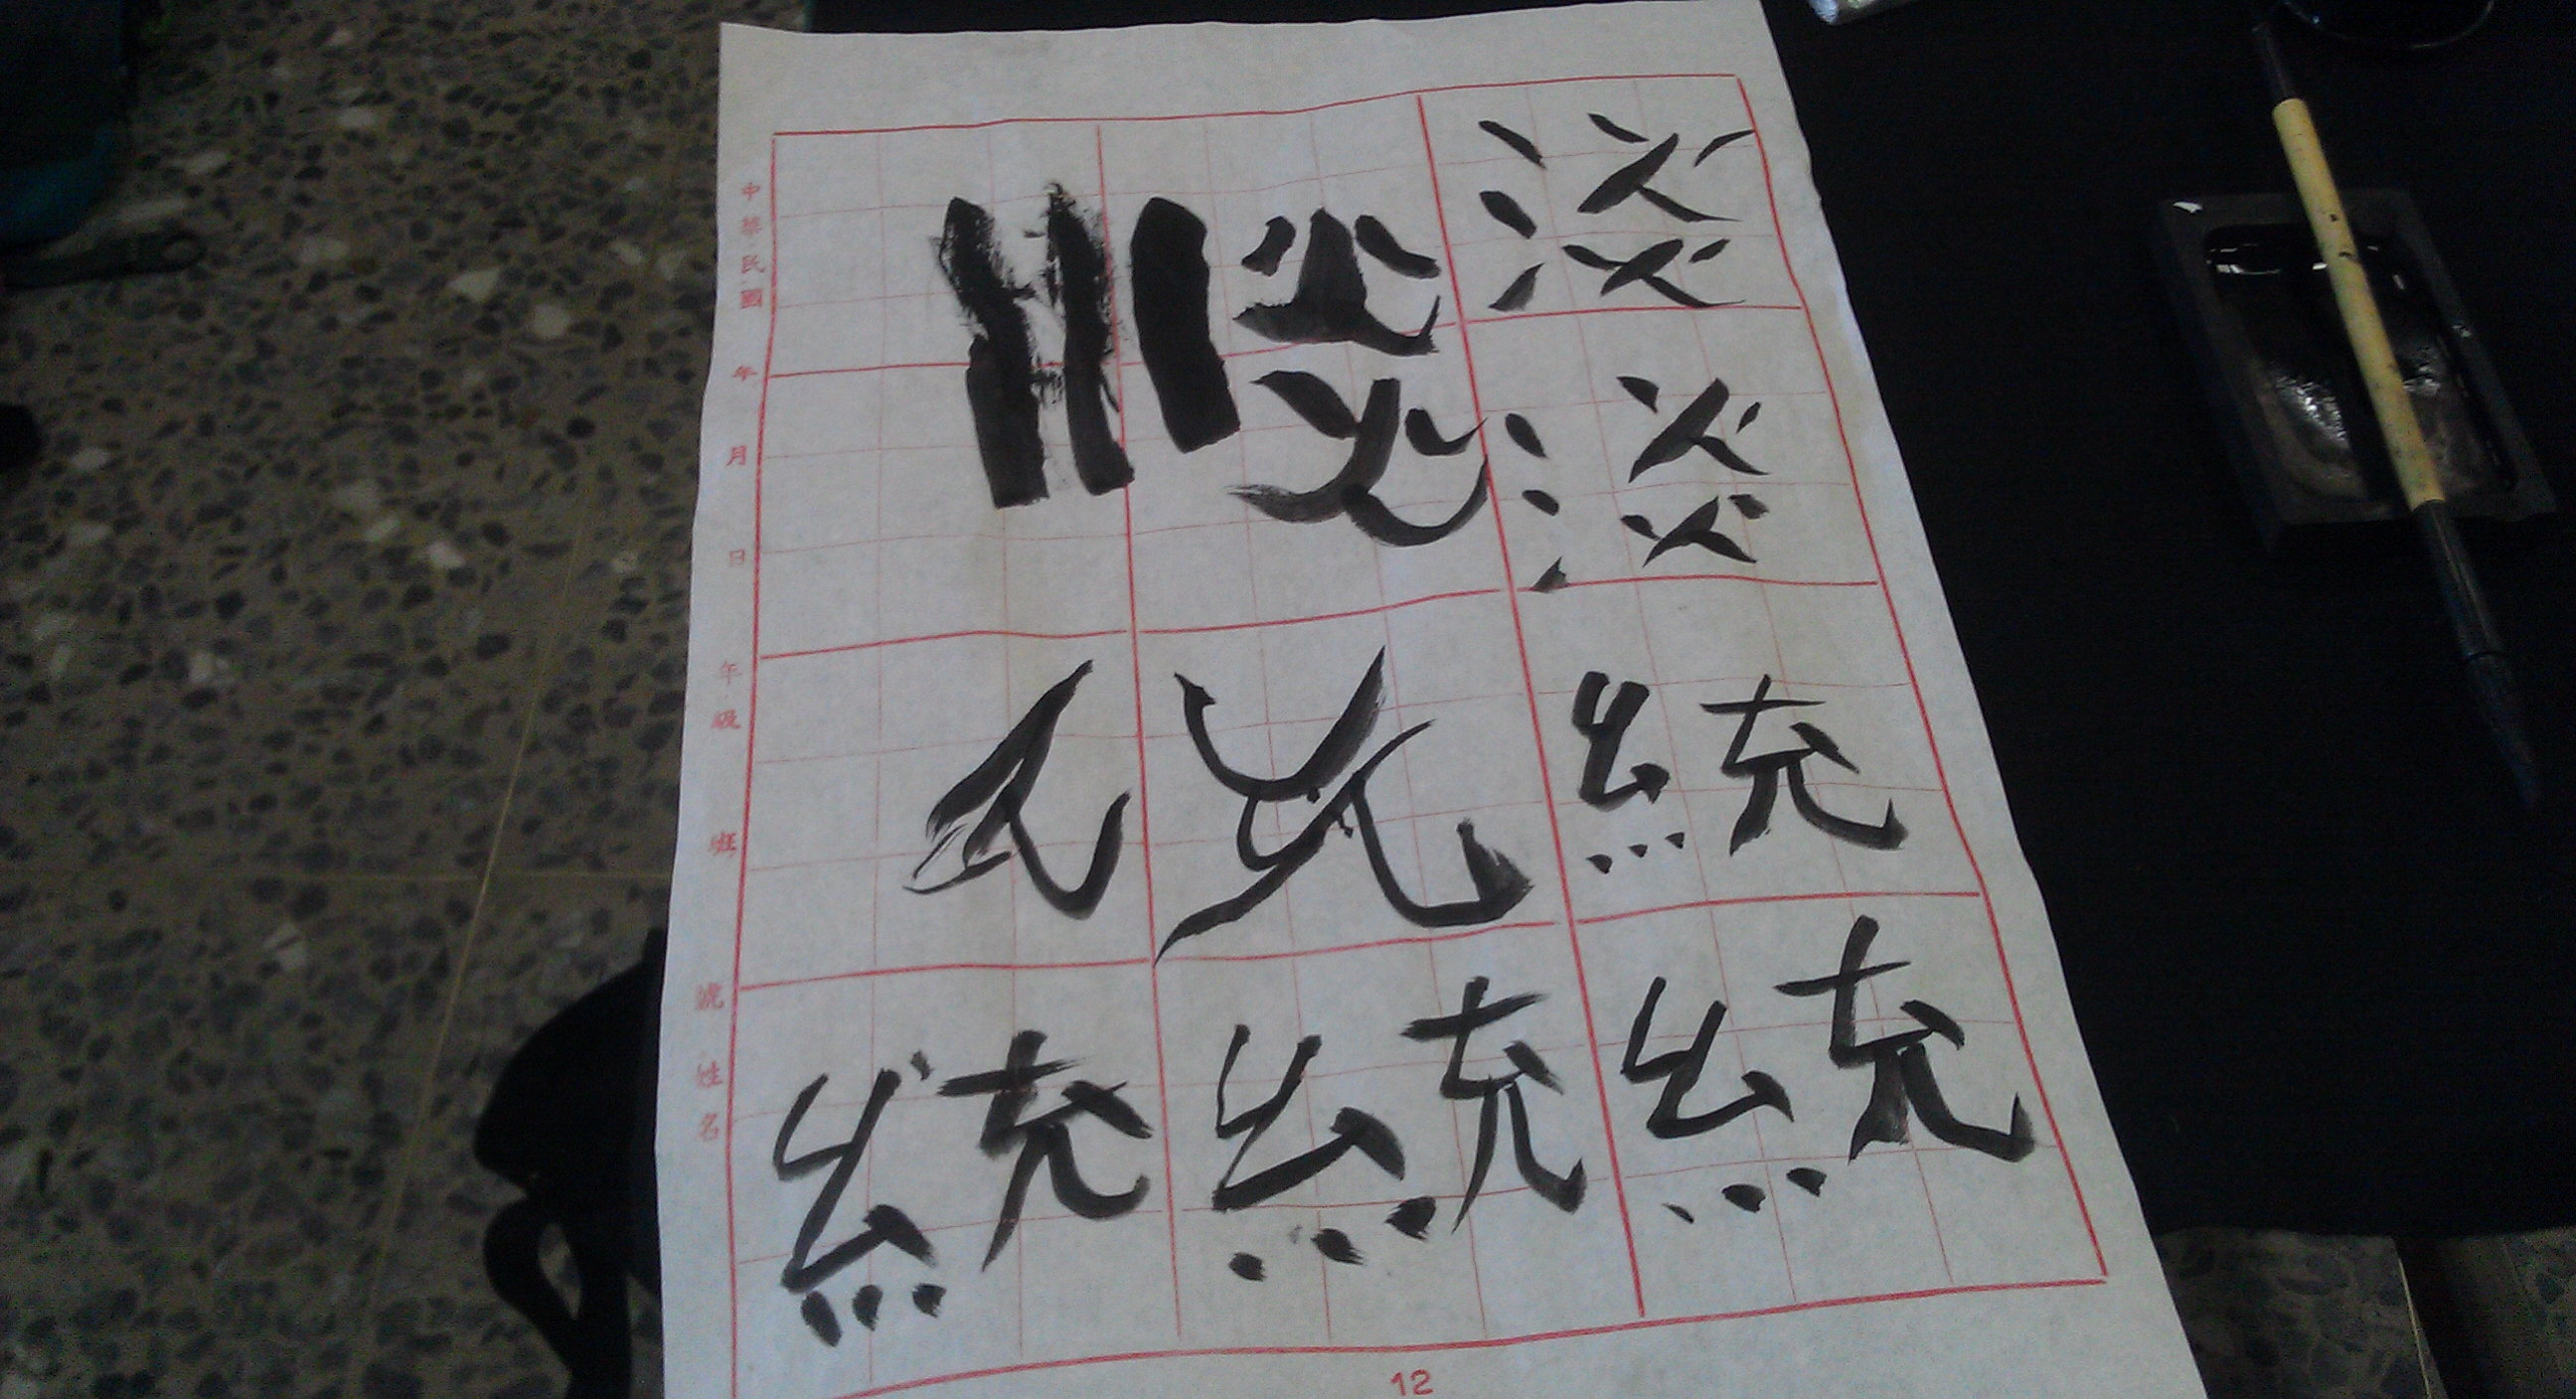 淡
淡
統
統
統
統
中華民國 年 月 日 年級 班 號 姓名
12